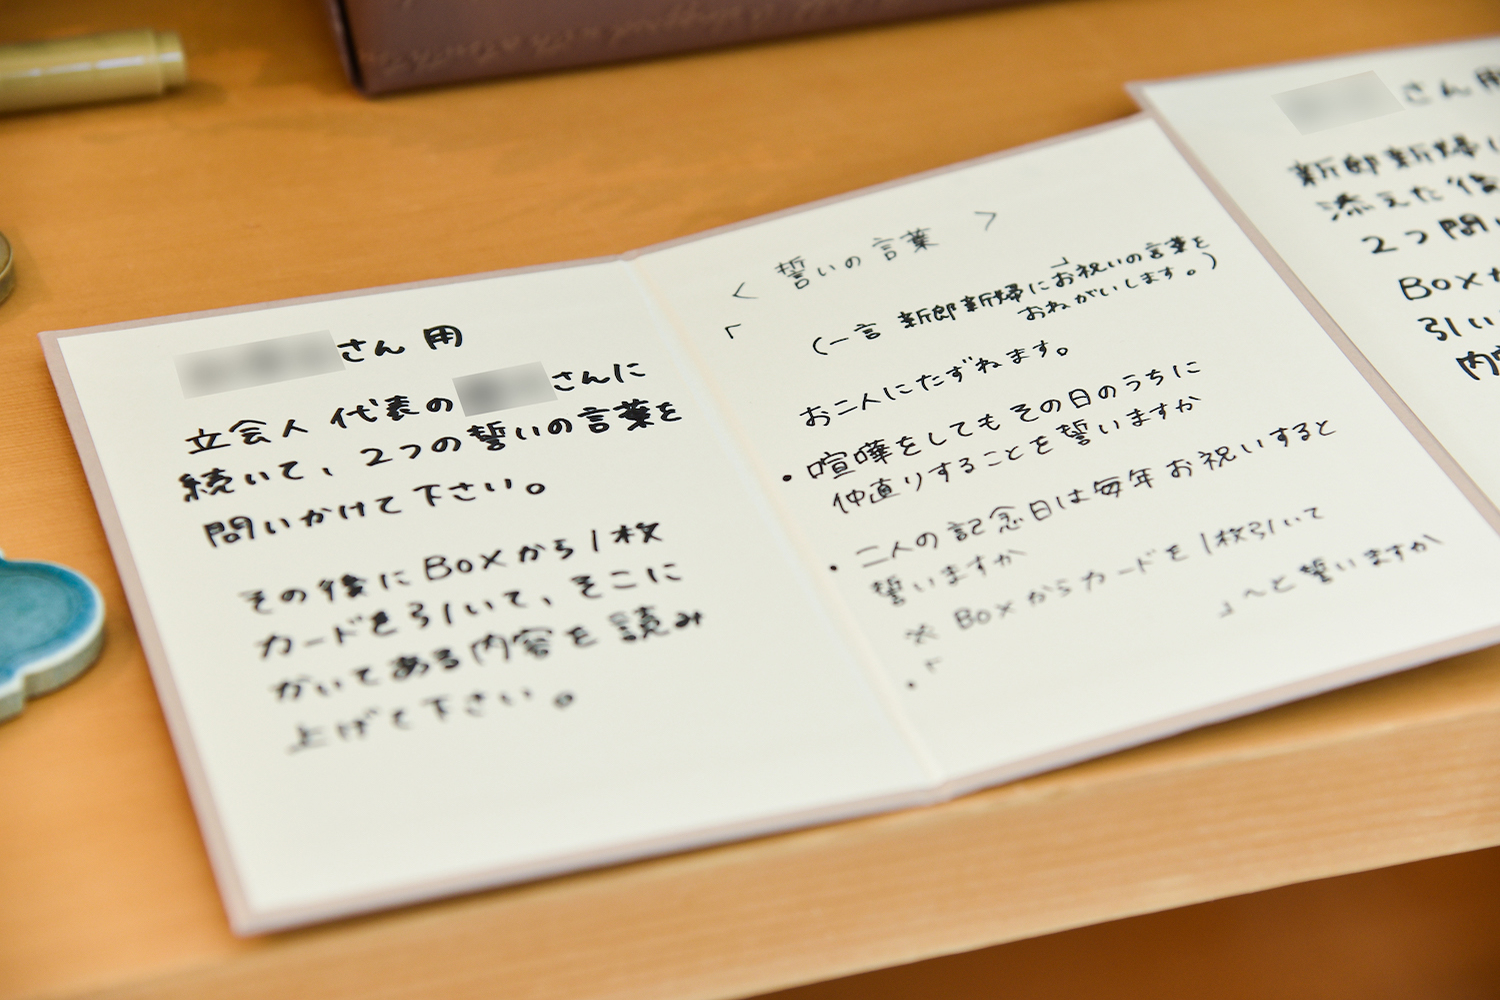 さん用
立会人代表の さんに
続いて、2つの誓いの言葉を
問いかけて下さい。
その後にBoxから1枚
カードを引いて、そこに
かいてある内容を読み
上げて下さい。
< 誓いの言葉 >
「 」
(一言 新郎新婦にお祝いの言葉を
おねがいします。)
お二人にたずねます。
・喧嘩をしてもその日のうちに
仲直りすることを誓いますか
・二人の記念日は毎年お祝いすると
誓いますか
※Boxからカードを1枚引いて
・「 」〜と誓いますか
さん用
新郎新婦
添えた後
2つ問
Box
引い
内容